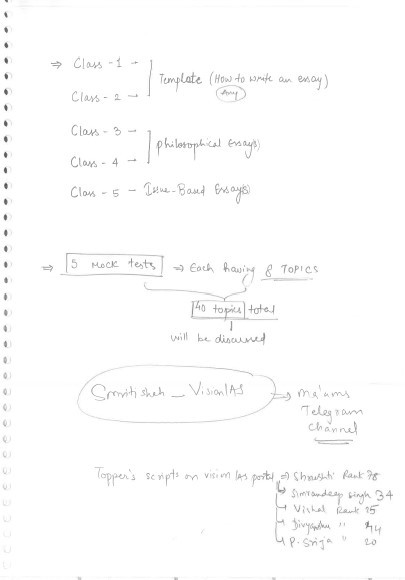 ⇒ Class - 1 →
Template (How to write an essay)
Any
Class - 2 →
Class - 3 →
philosophical Essay(s)
Class - 4 →
Class - 5 - Issue-Based Essay(s)
⇒ 5 Mock tests ⇒ Each having 8 TOPICS
40 topics total
will be discussed
Smritishah _ VisionIAS ⇒ ma'ams
Telegram
Channel
Topper's scripts on vision IAS portal ⇒ Shrushti Rank 78
Simrandeep Singh 34
Vishal Rank 25
Divyanshu " 44
P. Srija " 20